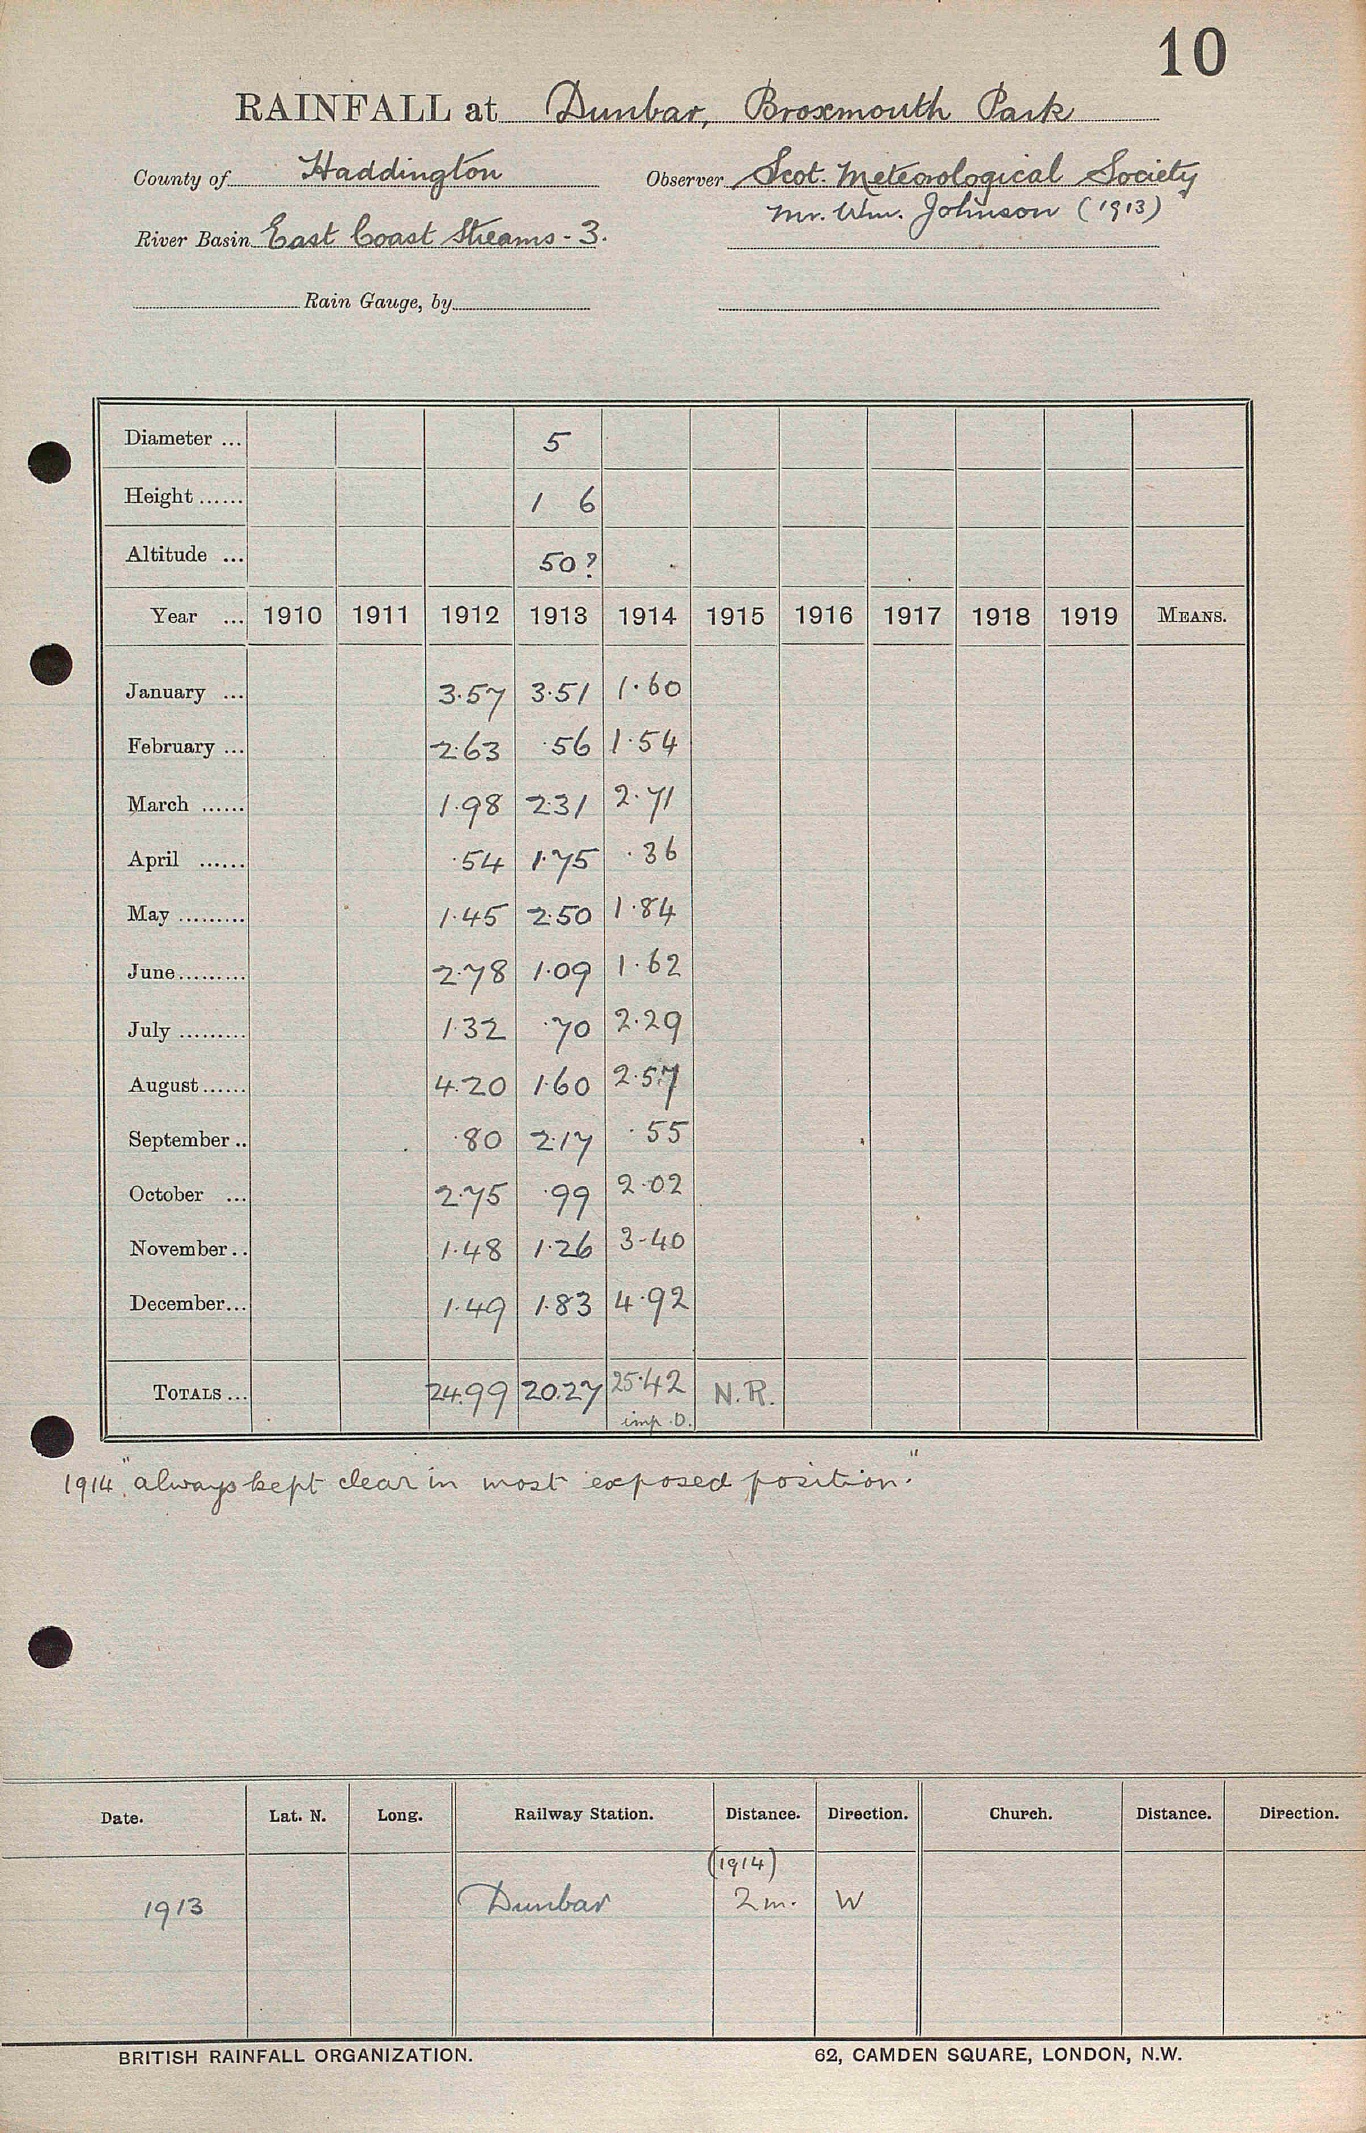 10
RAINFALL at Dunbar, Broxmouth Park
County of Haddington Observer Scot. Meteorological Society
Mr. Wm. Johnson (1913)
River Basin East Coast Streams - 3.
Rain Gauge, by
Diameter ... 5
Height ...... 1 6
Altitude ... 50?
Year ... 1910 1911 1912 1913 1914 1915 1916 1917 1918 1919 MEANS.
January ... 3.57 3.51 1.60
February ... 2.63 .56 1.54
March ...... 1.98 2.31 2.71
April ...... .54 1.75 .36
May ......... 1.45 2.50 1.84
June......... 2.78 1.09 1.62
July ......... 1.32 .70 2.29
August...... 4.20 1.60 2.57
September .. .80 2.17 .55
October ... 2.75 .99 2.02
November.. 1.48 1.26 3-40
December... 1.49 1.83 4.92
TOTALS ... 24.99 20.27 25.42 N.R.
imp. D.
1914 "always kept clear in most exposed position."
Date. Lat. N. Long. Railway Station. Distance. Direction. Church. Distance. Direction.
(1914)
1913 Dunbar 2 m. W
BRITISH RAINFALL ORGANIZATION. 62, CAMDEN SQUARE, LONDON, N.W.